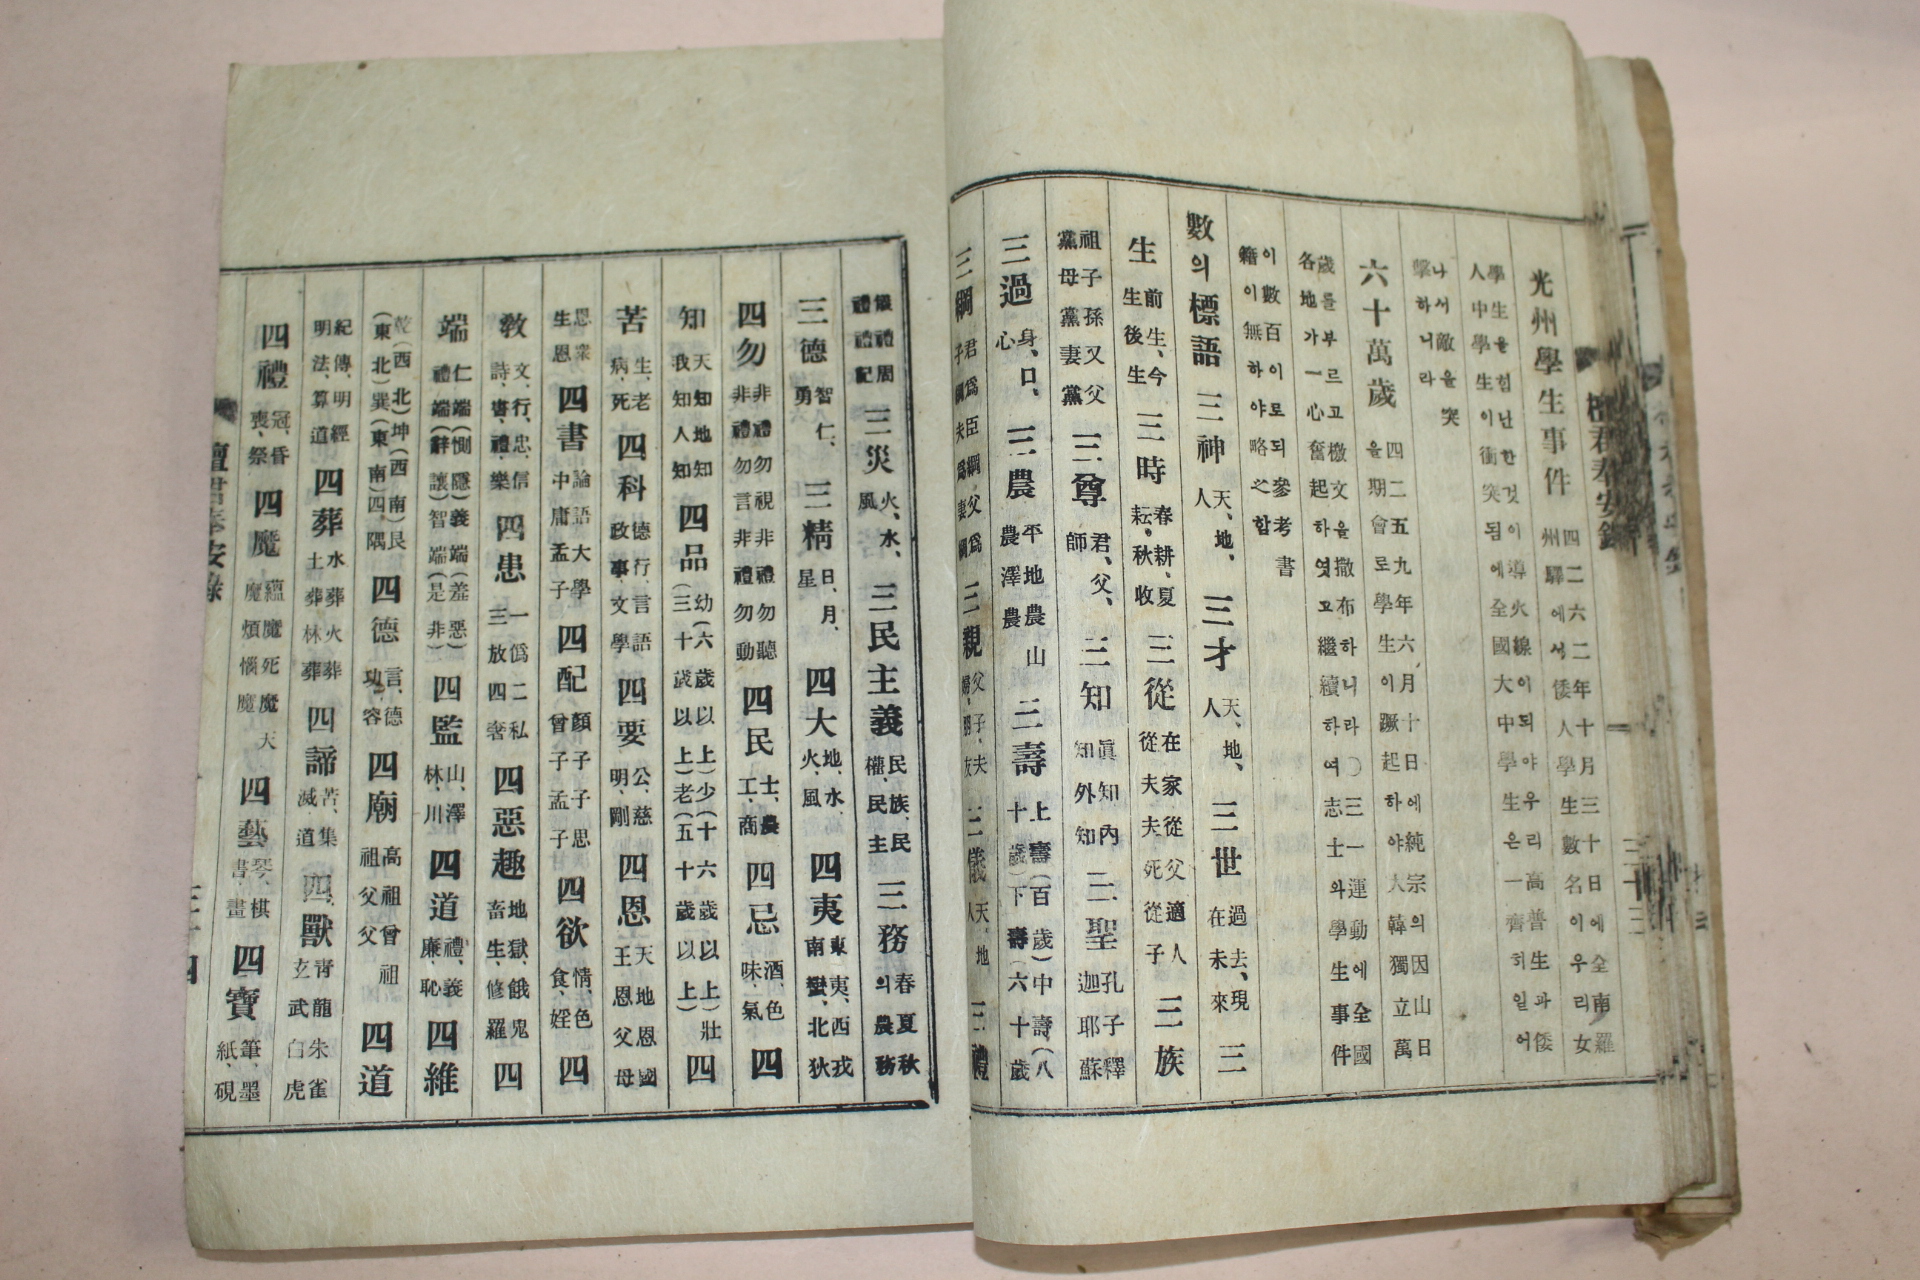 檀君奉安錄 三十三
光州學生事件 四二六二年十月三十日에全南羅州驛에서倭人學生數名이우리女
學生을힘난한것이導火線이되야우리高普生과倭人中學生이衝突됨에全國大中學生은一齊히일어
나서敵을突擊하니라
六十萬歲 四二五九年六月十日에純宗의因山日을期會로學生이蹶起하야大韓獨立萬
歲를부르고檄文을撒布하니라○三一運動에全國各地가一心奮起하엿고繼續하여志士와學生事件
이數百이로되參考書籍이無하야略之함
數의標語 三神 天、地、人 三才 天、地、人 三世 過去、現在未來 三
生 前生、今生後生 三時 春耕、夏耘、秋收 三從 在家從父適人從夫夫死從子 三族
祖子孫又父黨母黨妻黨 三尊 君、父、師 三知 眞知內知外知 三聖 孔子釋迦耶蘇
三過 身、口、心 三農 平地農山農澤農 三壽 上壽(百歲)中壽(八十歲)下壽(六十歲
三綱 君爲臣綱父爲子綱夫爲妻綱 三親 父子、夫婦、朋友 三儀 天、地人 三禮
儀禮周禮禮記 三災 火、水、風 三民主義 民族、民權、民主 三務 春夏秋의農務
三德 智仁、勇 三精 日、月、星 四大 地、水、火、風 四夷 東夷、西戎南蠻、北狄
四勿 非禮勿視非禮勿聽非禮勿言非禮勿動 四民 士、農工、商 四忌 酒、色味、氣 四
知 天知地知我知人知 四品 幼(六歲以上)少(十六歲以上)壯(三十歲以上)老(五十歲以上) 四
苦 生、老病、死 四科 德行、言語政事、文學 四要 公、慈明、剛 四恩 天地恩國王恩父母
恩衆生恩 四書 論語大學中庸孟子 四配 顔子子思曾子孟子 四欲 情、色食、婬 四
敎 文、行、忠、信詩、書、禮、樂 四患 一僞二私三放四奢 四惡趣 地獄、餓鬼畜生、修羅 四
端 仁端(惻隱)義端(羞惡)禮端(辭讓)智端(是非) 四監 山、澤林、川 四道 禮、義廉、恥 四維
乾(西北)坤(西南)艮(東北)巽(東南)四隅 四德 言、德功、容 四廟 高祖曾祖祖父父 四道
紀傳、明經明法、算道 四葬 水葬火葬土葬林葬 四諦 苦、集滅、道 四獸 靑龍朱雀玄武白虎
四禮 冠、昏喪、祭 四魔 蘊魔死魔天魔煩惱魔 四藝 琴、棋書、畫 四寶 筆、墨紙、硯
檀君奉安錄 三十四